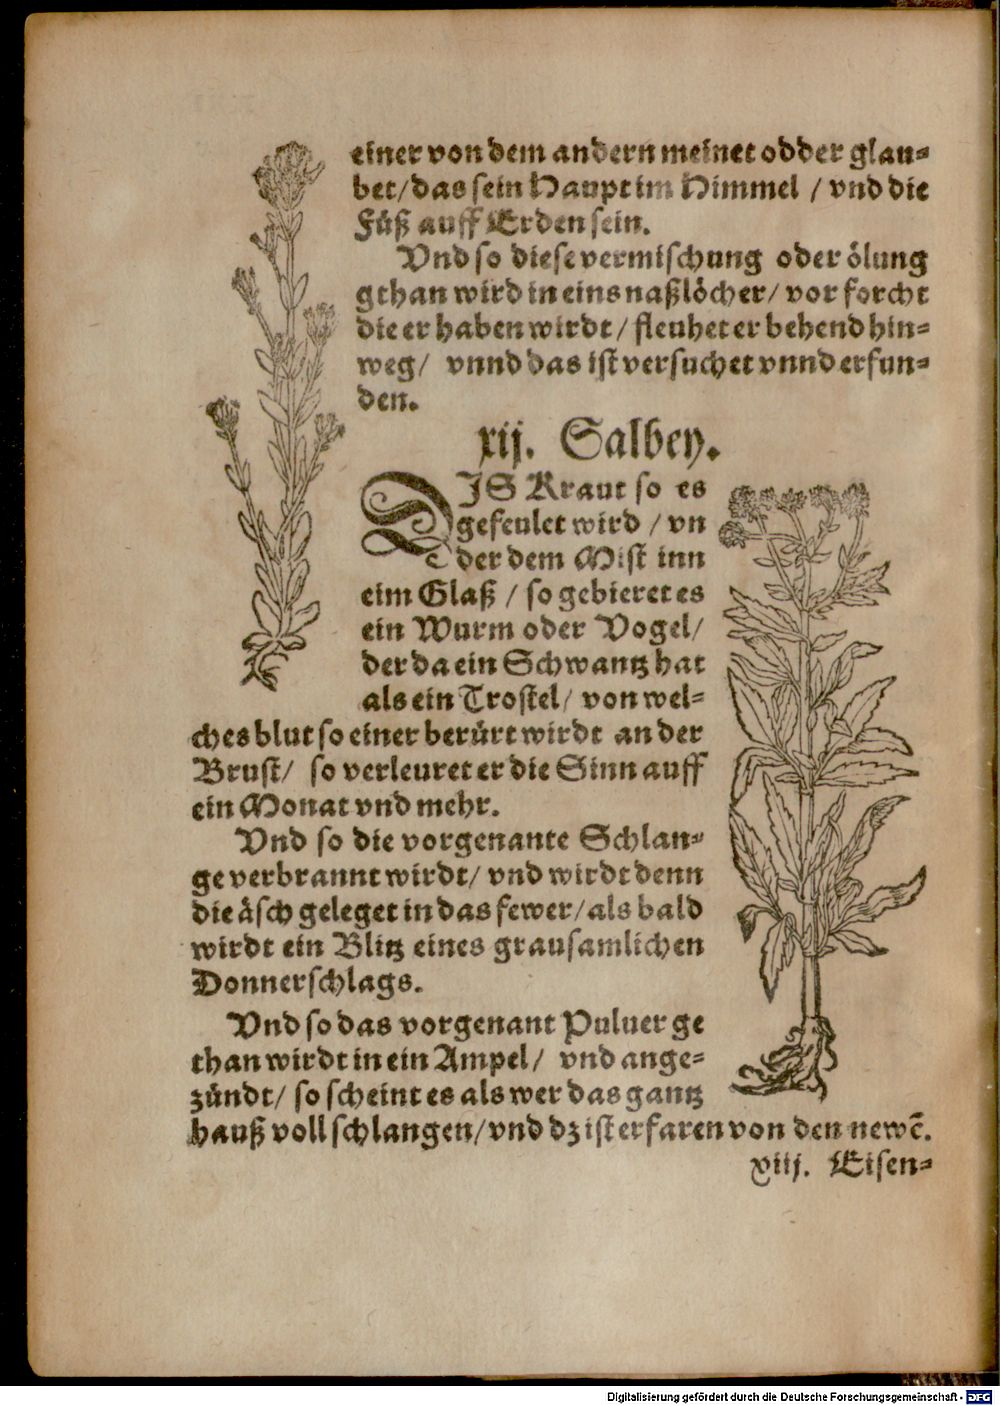 einer von dem andern meinet odder glau⸗
bet/das sein Haupt im Himmel / vnd die
Füß auff Erden sein.
Vnd so diese vermischung oder ölung
gthan wird in eins naßlöcher/ vor forcht
die er haben wirdt/ fleuhet er behend hin⸗
weg/ vnnd das ist versuchet vnnd erfun⸗
den.
xij. Salbey.
DJS Kraut so es
gefeulet wird / vn
der dem Mist inn
eim Glaß / so gebieret es
ein Wurm oder Vogel/
der da ein Schwantz hat
als ein Trostel/ von wel⸗
ches blut so einer berürt wirdt an der
Brust/ so verleuret er die Sinn auff
ein Monat vnd mehr.
Vnd so die vorgenante Schlan⸗
ge verbrannt wirdt/ vnd wirdt denn
die äsch geleget in das fewer/als bald
wirdt ein Blitz eines grausamlichen
Donnerschlags.
Vnd so das vorgenant Puluer ge
than wirdt in ein Ampel/ vnd ange⸗
zündt/ so scheint es als wer das gantz
hauß voll schlangen/vnd dz ist erfaren von den newē.
xiij. Eisen⸗
Digitalisierung gefördert durch die Deutsche Forschungsgemeinschaft - DFG